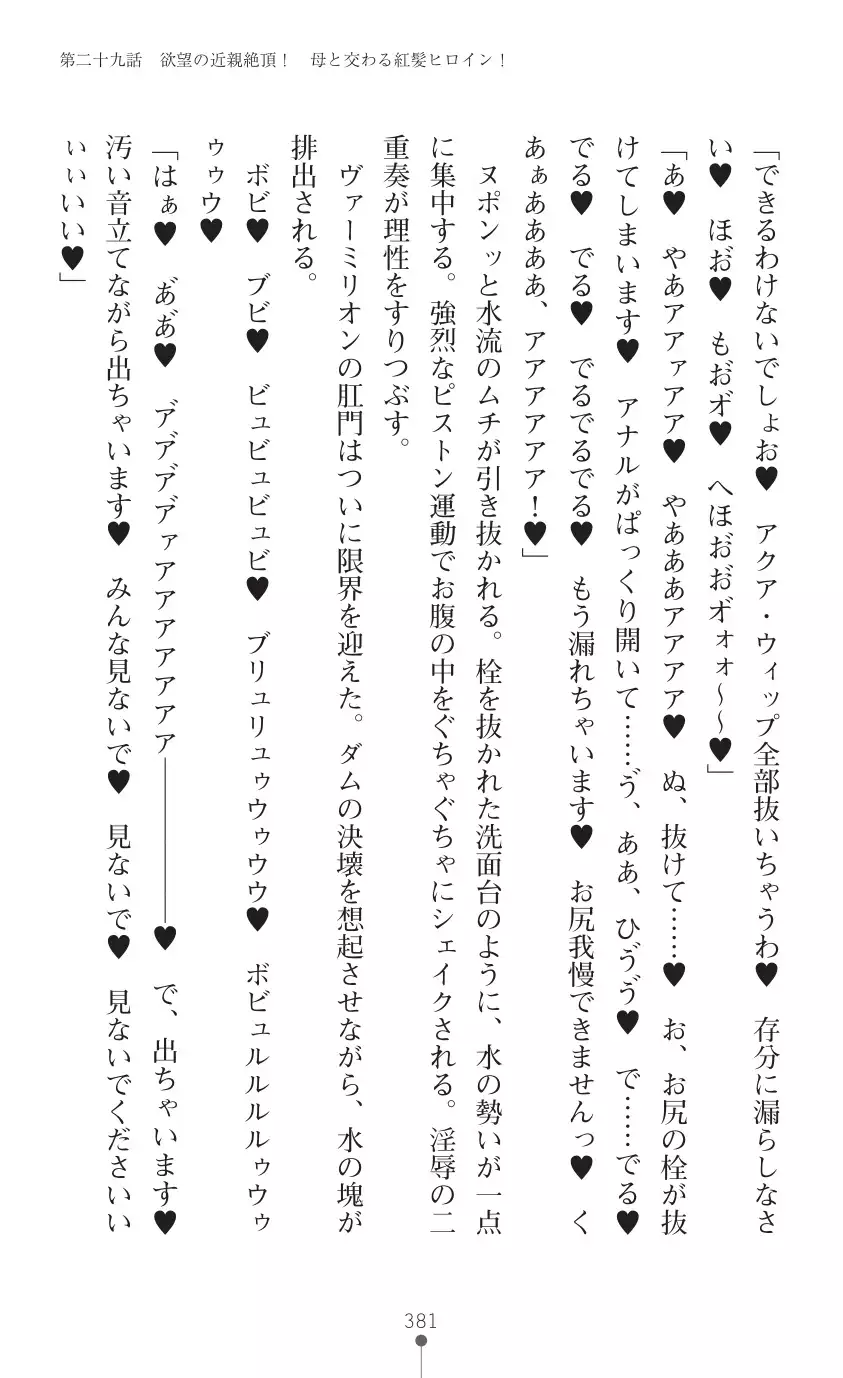 第二十九話　欲望の近親絶頂！　母と交わる紅髪ヒロイン！
「できるわけないでしょお♥　アクア・ウィップ全部抜いちゃうわ♥　存分に漏らしなさ
い♥　ほお゙♥　もお゙オ゙♥　へほお゙お゙オ゙ォォ～～♥」
「あ♥　やあアアァアア♥　やあああアアアア♥　ぬ、抜けて……♥　お、お尻の栓が抜
けてしまいます♥　アナルがぱっくり開いて……ゔ、ああ、ひゔゔ♥　で……でる♥
でる♥　でる♥　でるでるでる♥　もう漏れちゃいます♥　お尻我慢できませんっ♥　く
あぁああああ、アアアアアア！♥」
ヌポンッと水流のムチが引き抜かれる。栓を抜かれた洗面台のように、水の勢いが一点
に集中する。強烈なピストン運動でお腹の中をぐちゃぐちゃにシェイクされる。淫辱の二
重奏が理性をすりつぶす。
ヴァーミリオンの肛門はついに限界を迎えた。ダムの決壊を想起させながら、水の塊が
排出される。
ボビ♥　ブビ♥　ビュビュビュビ♥　ブリュリュゥウゥウウ♥　ボビュルルルルゥウゥ
ゥゥウ♥
「はぁ♥　あ゙あ゙♥　ア゙ア゙ア゙ア゙ァアアアアアアア――――――♥　で、出ちゃいます♥
汚い音立てながら出ちゃいます♥　みんな見ないで♥　見ないで♥　見ないでくださいい
ぃぃいい♥」
381